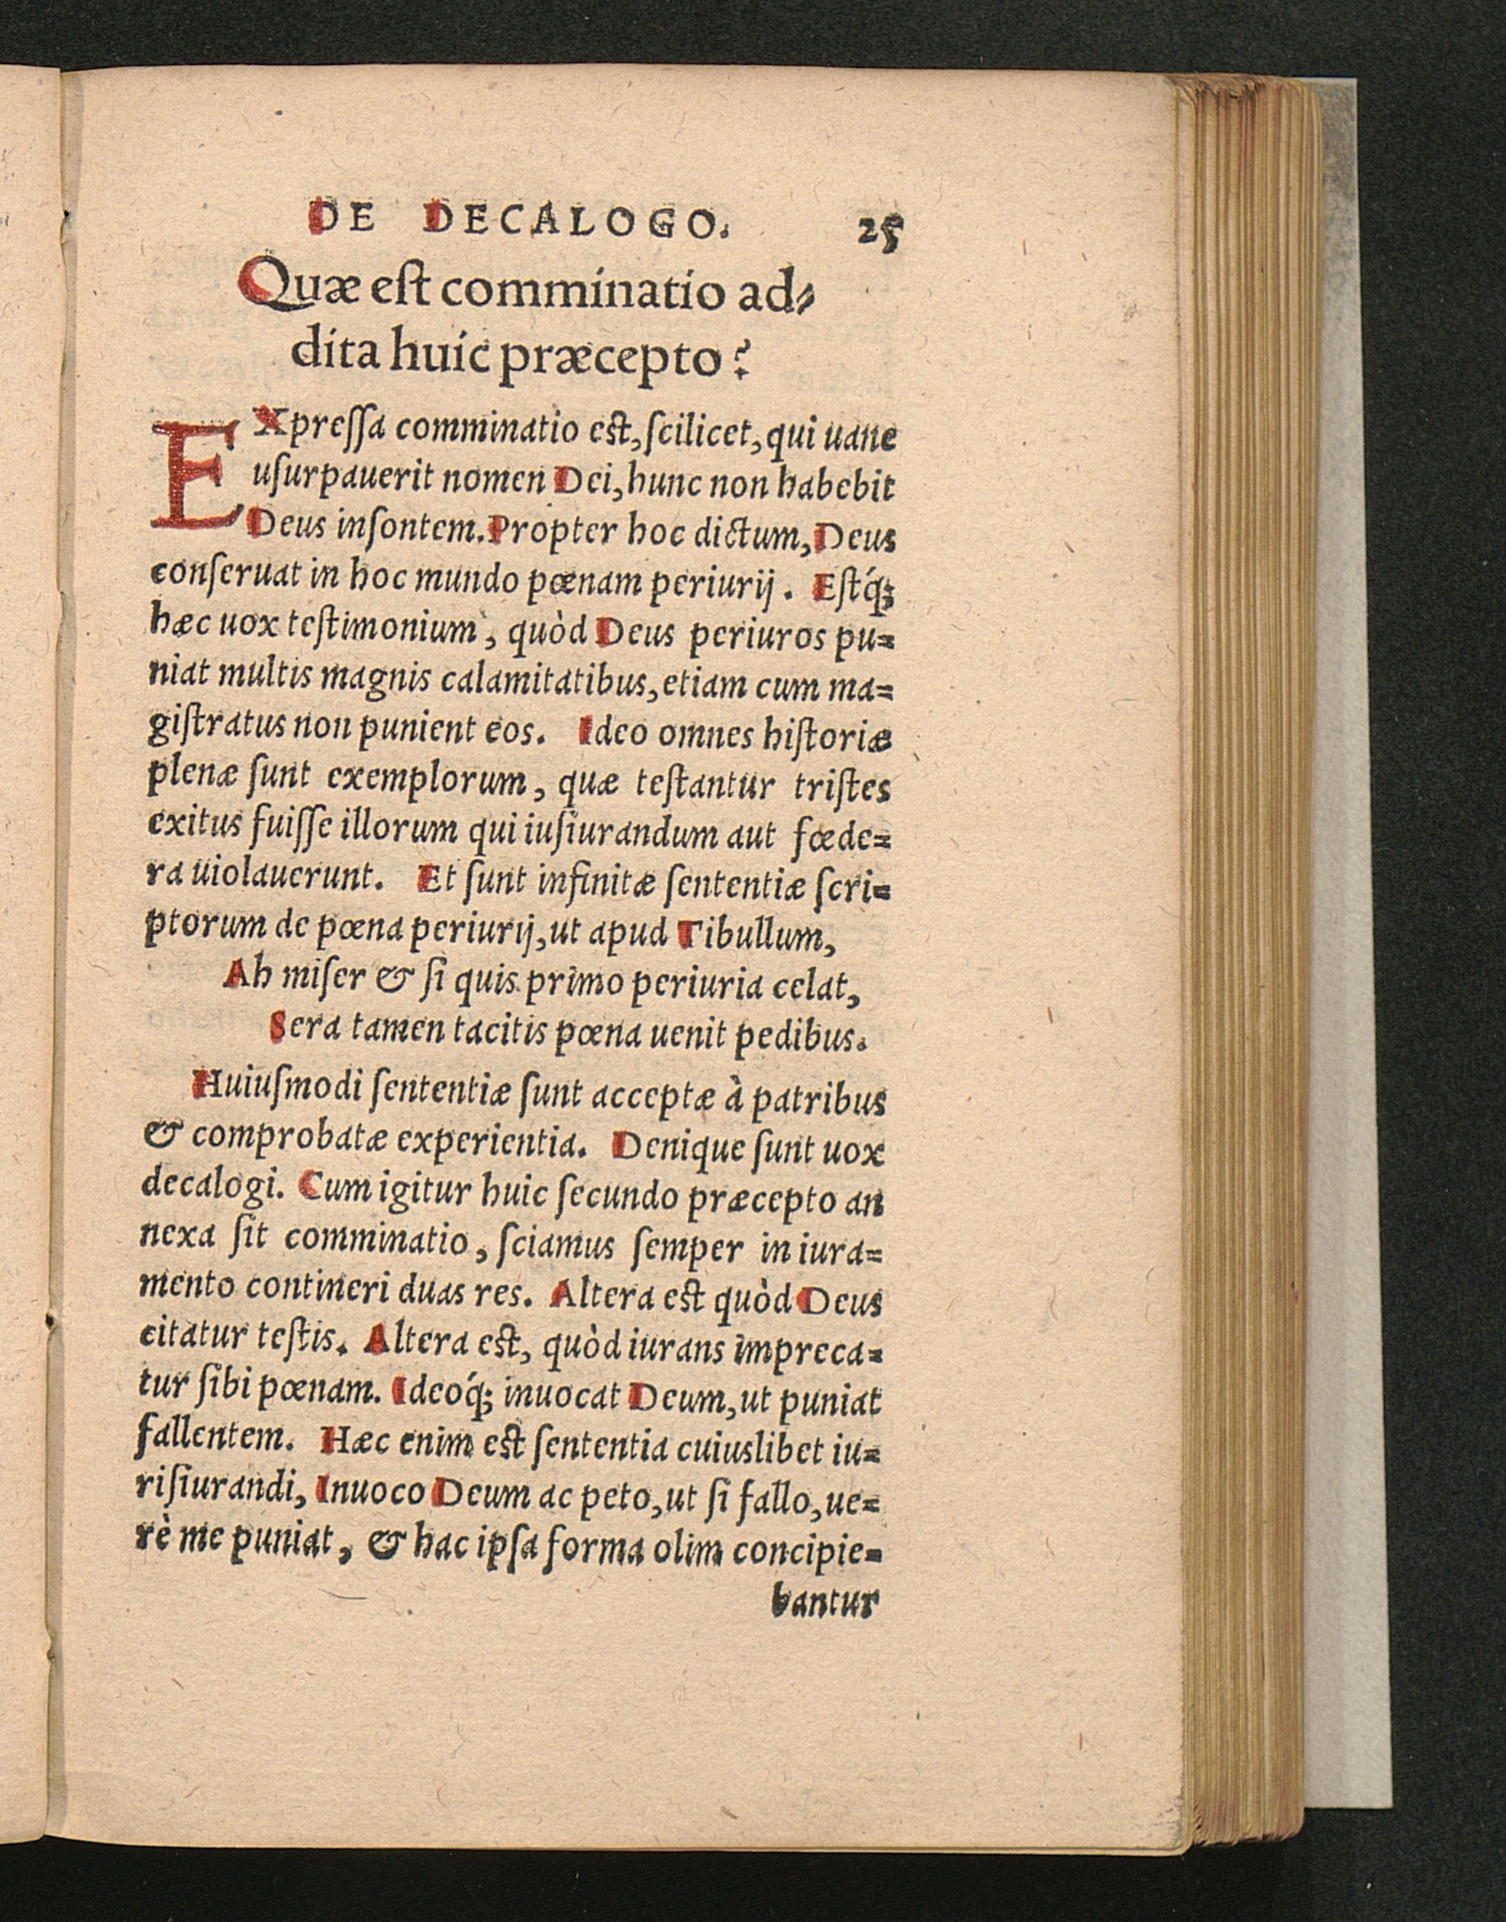 DE DECALOGO. 25
Quæ eſt comminatio ad-
dita huic præcepto?
EXpreſſa comminatio eſt, ſcilicet, qui uane
uſurpauerit nomen Dei, hunc non habebit
Deus inſontem. Propter hoc dictum, Deus
conſeruat in hoc mundo pœnam periurij. Eſtq́;
hæc uox teſtimonium, quòd Deus periuros pu=
niat multis magnis calamitatibus, etiam cum ma=
giſtratus non punient eos. Ideo omnes hiſtoriæ
plenæ ſunt exemplorum, quæ teſtantur triſtes
exitus fuiſſe illorum qui iuſiurandum aut fœde=
ra uiolauerunt. Et ſunt infinitæ ſententiæ ſcri=
ptorum de pœna periurij, ut apud Tibullum,
Ah miſer & ſi quis primo periuria celat,
Sera tamen tacitis pœna uenit pedibus.
Huiuſmodi ſententiæ ſunt acceptæ à patribus
& comprobatæ experientia. Denique ſunt uox
decalogi. Cum igitur huic ſecundo præcepto an
nexa ſit comminatio, ſciamus ſemper in iura=
mento contineri duas res. Altera eſt quòd Deus
citatur teſtis. Altera eſt, quòd iurans impreca=
tur ſibi pœnam. Ideoq́; inuocat Deum, ut puniat
fallentem. Hæc enim eſt ſententia cuiuslibet iu=
riſiurandi, Inuoco Deum ac peto, ut ſi fallo, ue=
rè me puniat, & hac ipſa forma olim concipie=
bantur